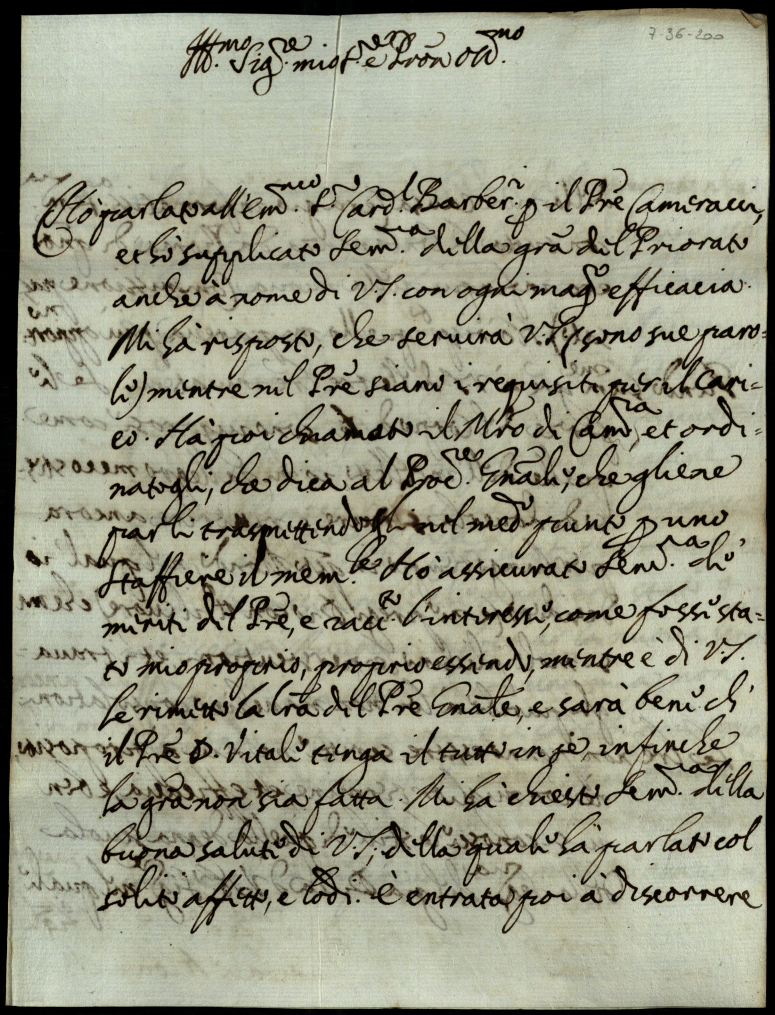 7-36-200
Ill.mo Sig.re mio S.re e Pron Oss.mo
Hò parlato all'Em.mo S.r Card.l Barber.i p il Prè Cameracci,
et hò supplicato Sem.a della grã del Priorato
anche à nome di V.S. con ogni mag.r efficacia.
Mi hà risposto, che seruirà V.S. (sono sue paro=
le) mentre nel Prè siano i requisiti per il Cari=
co. Hà poi chiamato il Mrõ di Cam.ra, et ordi=
natogli, che dica al Proc.re Gnãle, che gliene
parli trasmettendogli nel med.o punto p uno
Staffiere il mem.le Hò assicurato Sem.a de'
meriti del Prè, e racc.to l'interesse, come fosse sta=
to mio proprio, proprio essendo, mentre è di V.S.
Le rimetto la lrã del Prè Gnãle, e sarà bene ch'
il Prè D. Vitale tenga il tutto in se, infinche
la grã non sia fatta. Mi hà chiesto Sem.a della
buona salute di V.S., della quale hà parlato col
solito affetto, e lodi. È entrata poi à discorrere